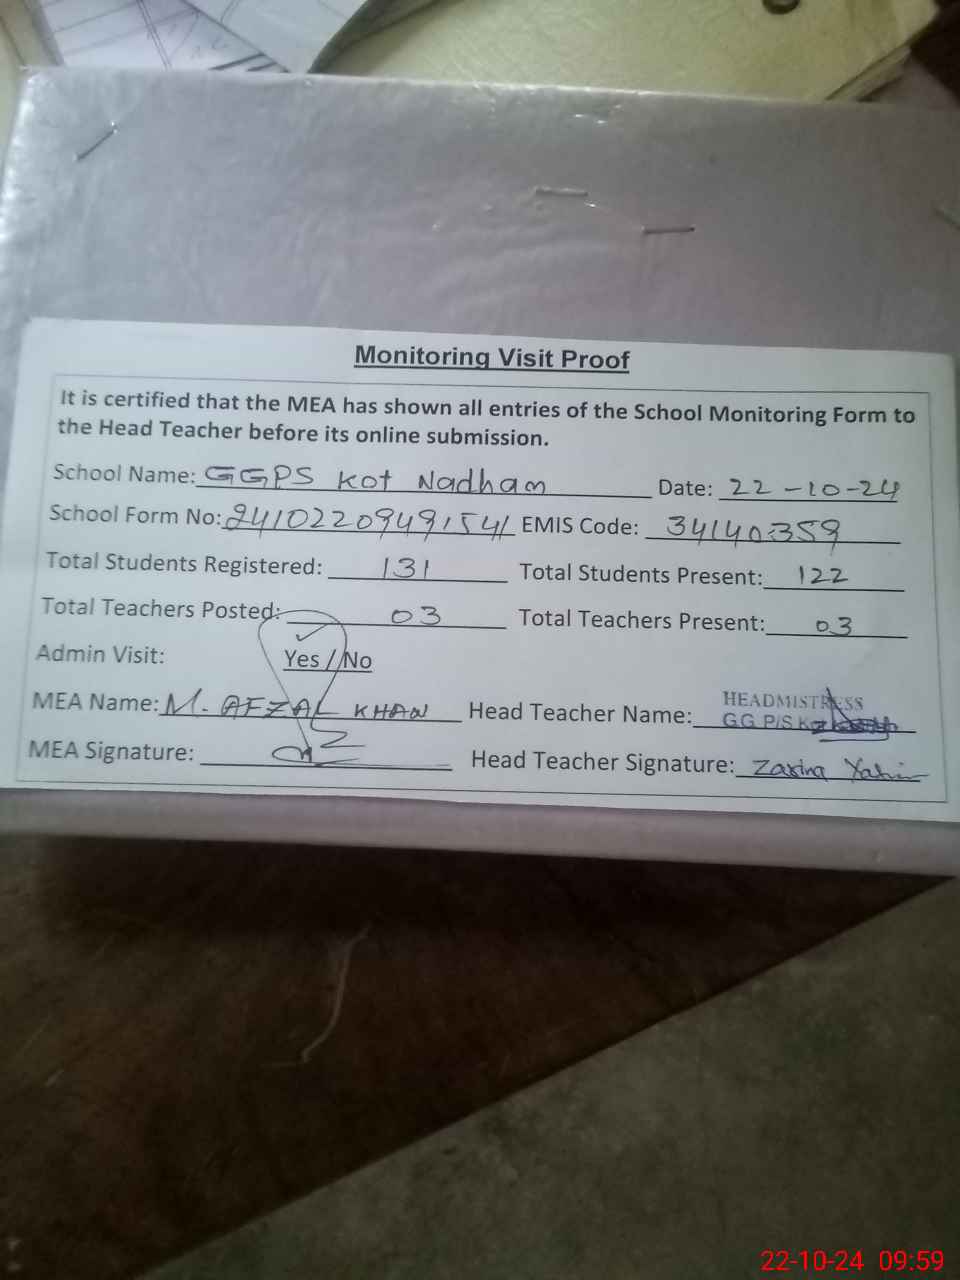 Monitoring Visit Proof
It is certified that the MEA has shown all entries of the School Monitoring Form to
the Head Teacher before its online submission.
School Name: GGPS Kot Nadham Date: 22-10-24
School Form No: 24102209491541 EMIS Code: 34140359
Total Students Registered: 131 Total Students Present: 122
Total Teachers Posted: 03 Total Teachers Present: 03
Admin Visit: Yes / No
MEA Name: M. AFZAL KHAN Head Teacher Name: HEADMISTRESS
G.G. P/S Kot
MEA Signature: Head Teacher Signature: Zarina
22-10-24 09:59